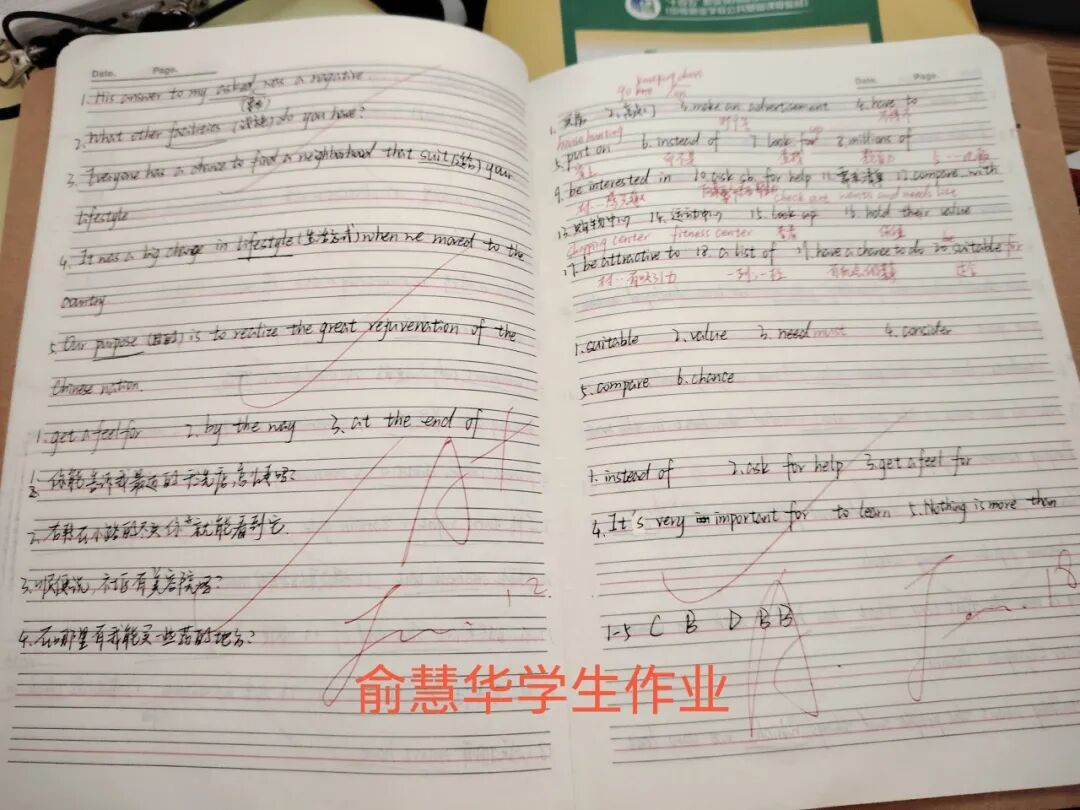 Date. Page.
1. His answer to my asked was a negative.
2. What other facilities (设施) do you have?
3. Everyone has a chance to find a neighborhood that suit (适合) your
lifestyle
4. It was a big change in lifestyle (生活方式) when we moved to the
country
5. Our purpose (目的) is to realize the great rejuvenation of the
Chinese nation.
1. get a feel for 2. by the way 3. at the end of
1. 你能告诉我最近的 怎么走吗?
2. 右转在小路的尽头你就能看到它.
3. 顺便说, 社区有美容院吗?
4. 在哪里有我能买一些药的地方?
Date. Page.
3. make an advertisement 4. have to
不得不
house hunting
5. put on 6. instead of 7. look for 8. millions of
穿上 而不是 寻找 数百万
9. be interested in 10. ask sb. for help 12. compare...with
对…感兴趣 check out wants and needs list
13. 购物中心 14. 运动中心 15. look up 16. hold their value
shopping center fitness center 查阅 保值
17. be attractive to 18. a list of 19. have a chance to do 20. be suitable for
对…有吸引力 一列,一栏 适合
1. suitable 2. value 3. need must 4. consider
5. compare 6. chance
1. instead of 2. ask for help 3. get a feel for
4. It's very important for to learn 5. Nothing is more than
1-5 C B D B B
俞慧华学生作业